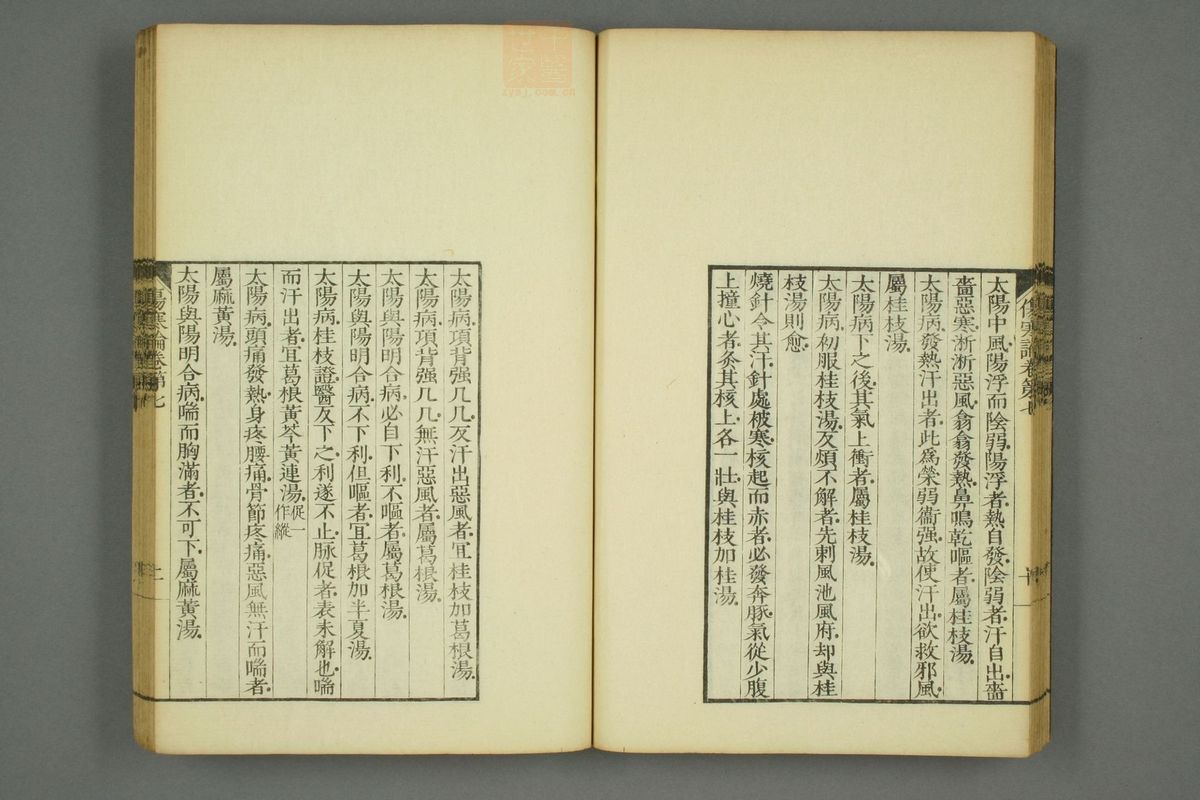 太陽中風陽浮而陰弱陽浮者熱自發陰弱者汗自出嗇
嗇惡寒淅淅惡風翕翕發熱鼻鳴乾嘔者屬桂枝湯
太陽病發熱汗出者此為榮弱衞强故使汗出欲救邪風
屬桂枝湯
太陽病下之後其氣上衝者屬桂枝湯
太陽病初服桂枝湯反煩不解者先刺風池風府却與桂
枝湯則愈
燒針令其汗針處被寒核起而赤者必發奔豚氣從少腹
上撞心者灸其核上各一壯與桂枝加桂湯
太陽病項背强几几反汗出惡風者宜桂枝加葛根湯
太陽病項背强几几無汗惡風者屬葛根湯
太陽與陽明合病必自下利不嘔者屬葛根湯
太陽與陽明合病不下利但嘔者宜葛根加半夏湯
太陽病桂枝證醫反下之利遂不止脉促者表未解也喘
而汗出者宜葛根黃芩黃連湯促一作縱
太陽病頭痛發熱身疼腰痛骨節疼痛惡風無汗而喘者
屬麻黃湯
太陽與陽明合病喘而胸滿者不可下屬麻黃湯
傷寒論卷第七
zysj.com.cn